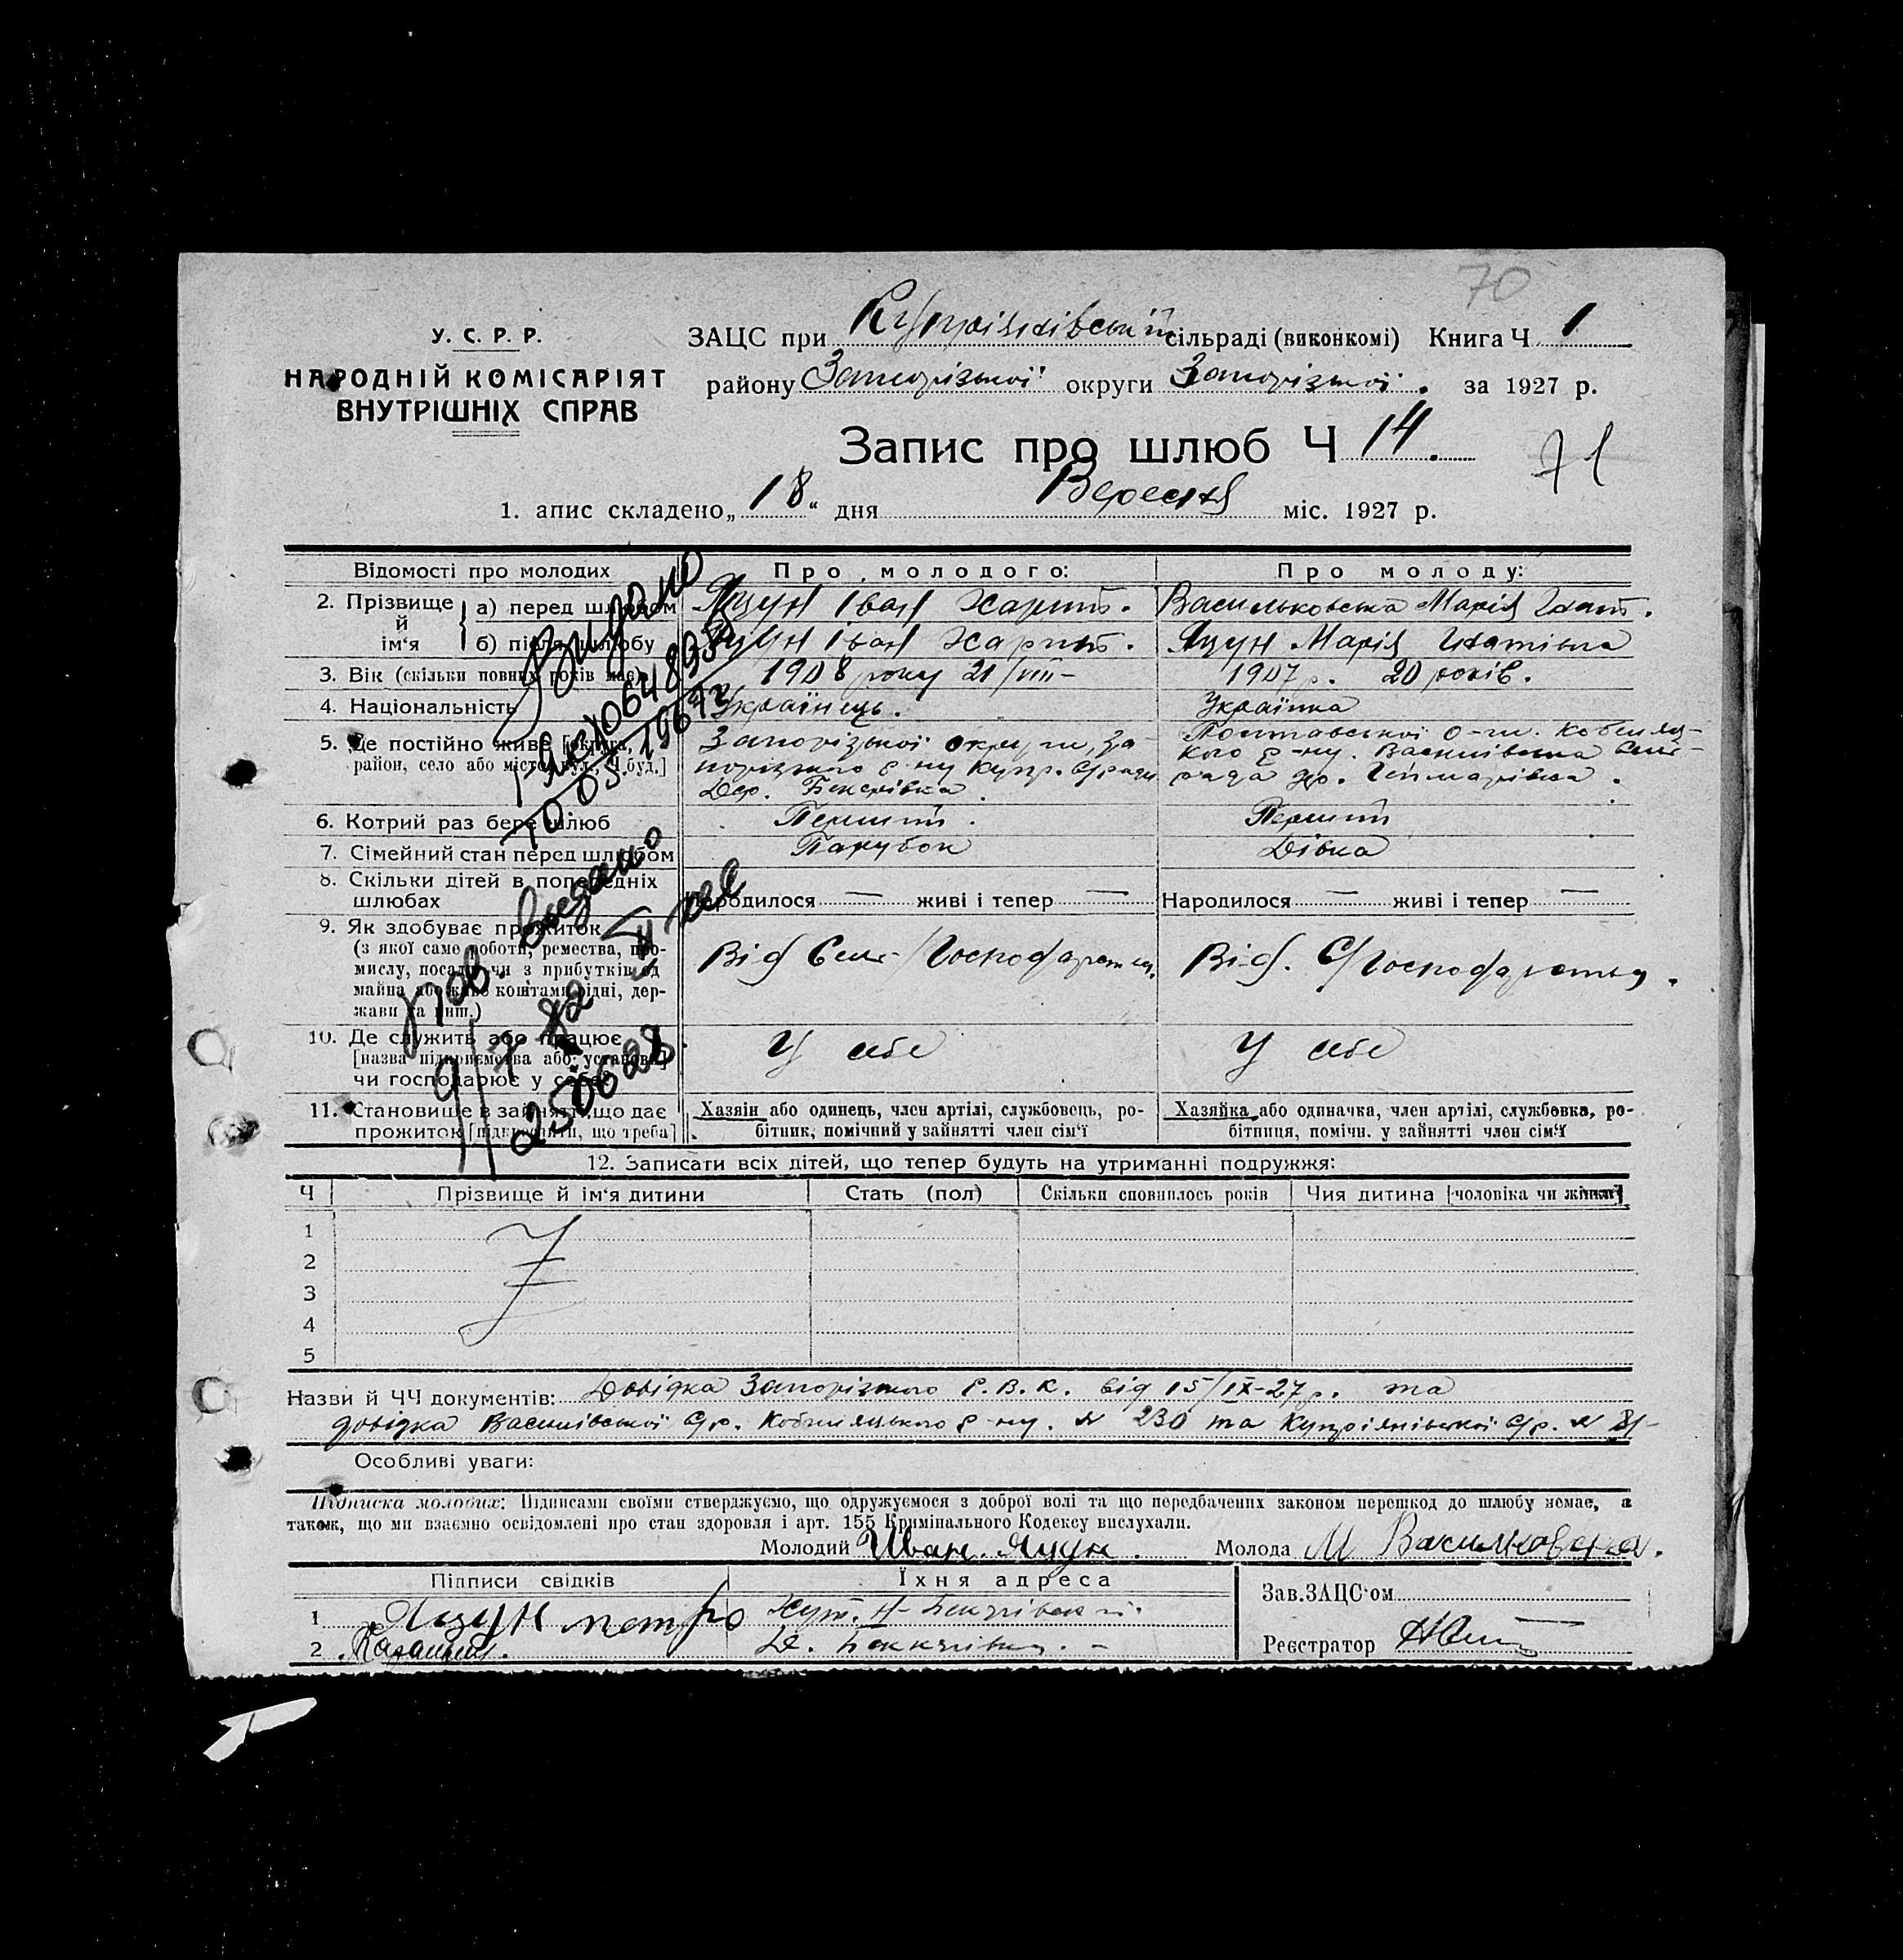 70
У. С. Р. Р.
НАРОДНІЙ КОМІСАРІЯТ
ВНУТРІШНІХ СПРАВ
ЗАЦС при Купріянівській сільраді (виконкомі) Книга Ч 1
району Запорізької округи Запорізької. за 1927 р.
Запис про шлюб Ч 14.
71
1. апис складено „18“ дня Вересня міс. 1927 р.
Відомості про молодих
Про молодого:
Про молоду:
2. Прізвище й ім‘я
а) перед шлюбом
Яцун Іван Харит.
Васильковська Марія Ігнат.
б) після шлюбу
Яцун Іван Харит.
Яцун Марія Ігнатівна
3. Вік (скільки повних років має)
1908 року 21/VIII-
1907 р. 20 років.
4. Національність
Українець.
Українка
5. Де постійно живе [округа, район, село або місто, вул., Ч буд.]
Запорізької округи, За-
порізького р-ну Купр. С/ради
Дер.
Полтавської о-ги. Кобиляц-
кого р-ну. Василівська Сіль-
рада др.
6. Котрий раз бере шлюб
Перший.
Перший
7. Сімейний стан перед шлюбом
Парубок
Дівка
8. Скільки дітей в попередніх шлюбах
Народилося — живі і тепер —
Народилося — живі і тепер —
9. Як здобуває прожиток
(з якої саме роботи, ремества, про-
мислу, посади чи з прибутків од
майна або живе коштами рідні, дер-
жави та инш.)
Від Сіль-/Господарства.
Від. С/Господарства.
10. Де служить або працює
[назва підприємства або установи]
чи господарює у себе
У себе
У себе
11. Становище в зайнятті, що дає
прожиток [підкреслити, що треба]
Хазяін або одинець, член артілі, службовець, ро-
бітник, помічний у зайнятті член сім‘ї
Хазяйка або одиначка, член артілі, службовка, ро-
бітниця, помічн. у зайнятті член сім‘ї
Видано
10.05.1967
Пов. видано
9/7-82
250628
12. Записати всіх дітей, що тепер будуть на утриманні подружжя:
Ч
Прізвище й ім‘я дитини
Стать (пол)
Скільки сповнилось років
Чия дитина [чоловіка чи жінки]
1
2
3
4
5
Назви й ЧЧ документів: Довідка Запорізького Р.В.К. від 15/IX-27 р. та
довідка Василівської С/р. Кобиляцького р-ну. № 230 та Купріянівської С/р. №
Особливі уваги:
Підписка молодих: Підписами своїми стверджуємо, що одружуємося з доброї волі та що передбачених законом перешкод до шлюбу немає, а
також, що ми взаємно освідомлені про стан здоровля і арт. 155 Кримінального Кодексу вислухали.
Молодий Иван Яцун. Молода М Васильковська.
Підписи свідків
Їхня адреса
1 Яцун петро
2
Зав. ЗАЦС‘ом
Реєстратор